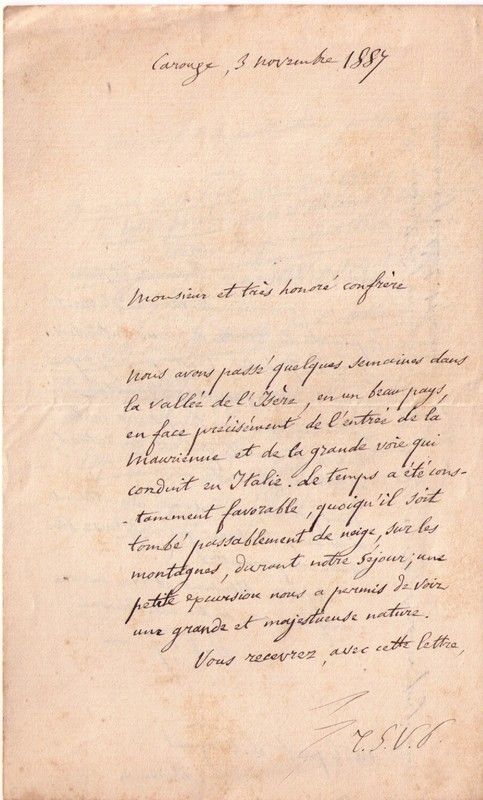 Carouge, 3 novembre 1887
Monsieur et très honoré confrère
Nous avons passé quelques semaines dans
la vallée de l'Isère, en un beau pays,
en face précisément de l'entrée de la
Maurienne et de la grande voie qui
conduit en Italie. Le temps a été cons-
-tamment favorable, quoiqu'il soit
tombé passablement de neige, sur les
montagnes, durant notre séjour; une
petite excursion nous a permis de voir
une grande et majestueuse nature.
Vous recevrez, avec cette lettre,
T.S.V.P.